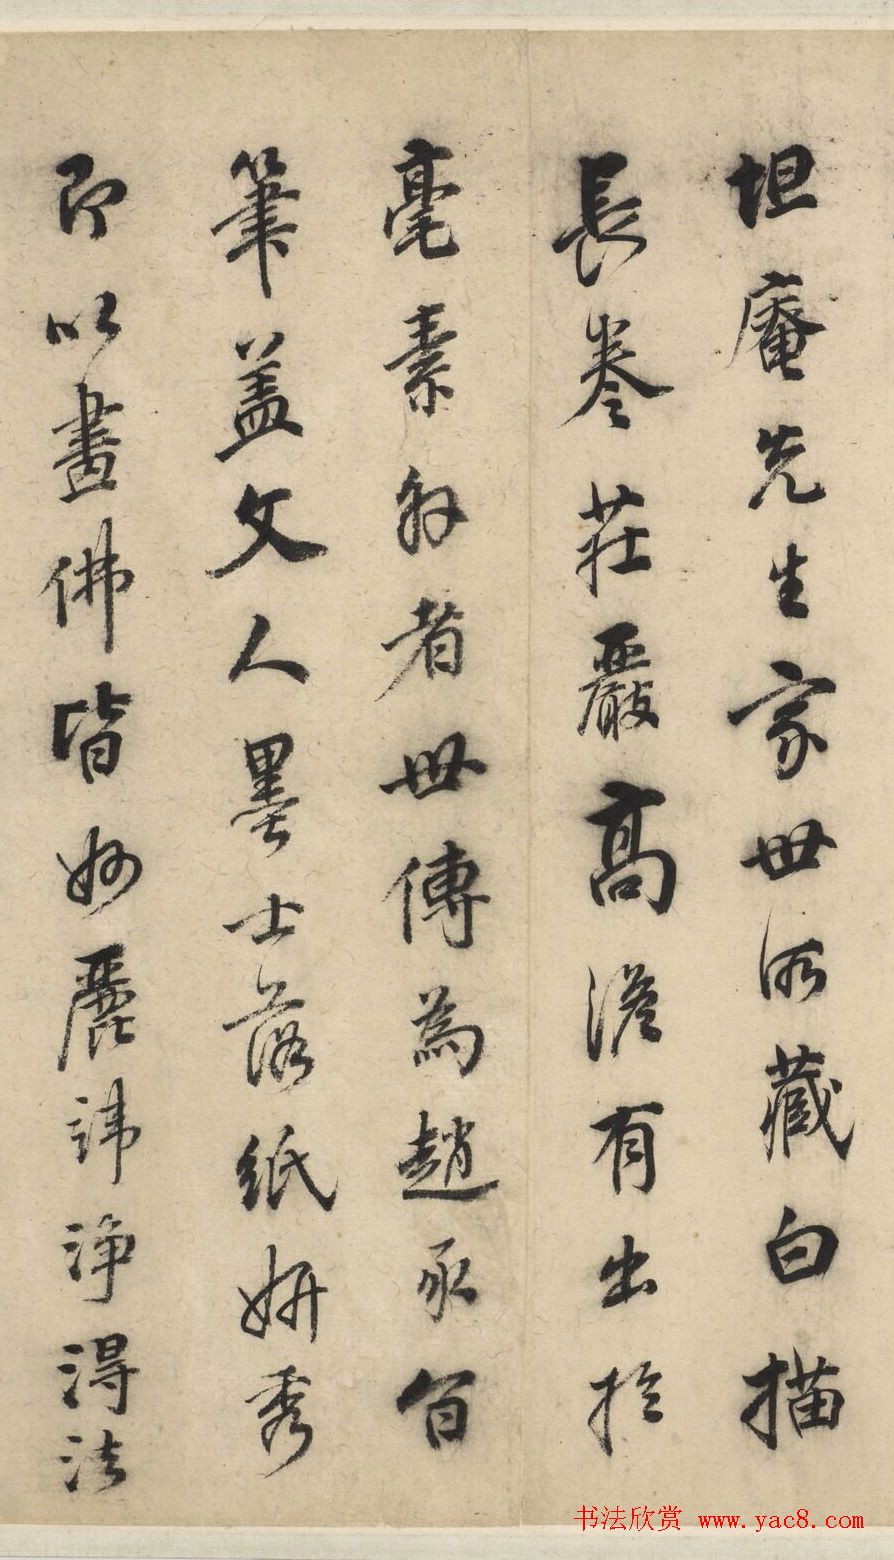 坦庵先生家世所藏白描
長卷莊嚴高澹有出扵
毫素外者世傳為趙承旨
筆盖文人墨士落紙妍秀
即以畫佛皆妙麗諱淨得法
书法欣赏 www.yac8.com